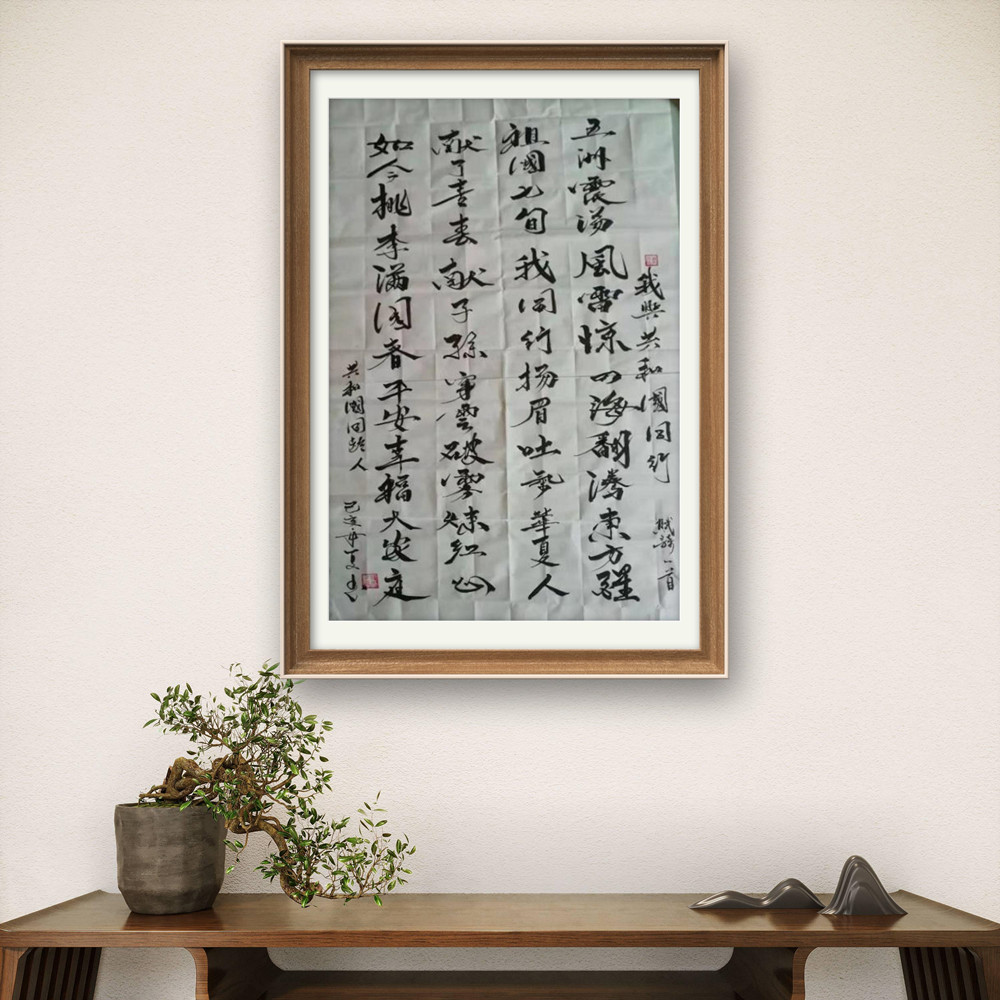 我與共和國同行 詩一首
五洲震荡風雷惊四海翻騰東方醒
祖國七旬我同行揚眉吐氣華夏人
献了青春献子孫穿雲破霧煉红心
如今桃李满园春平安幸福大家庭
共和國同龄人 己亥年夏书